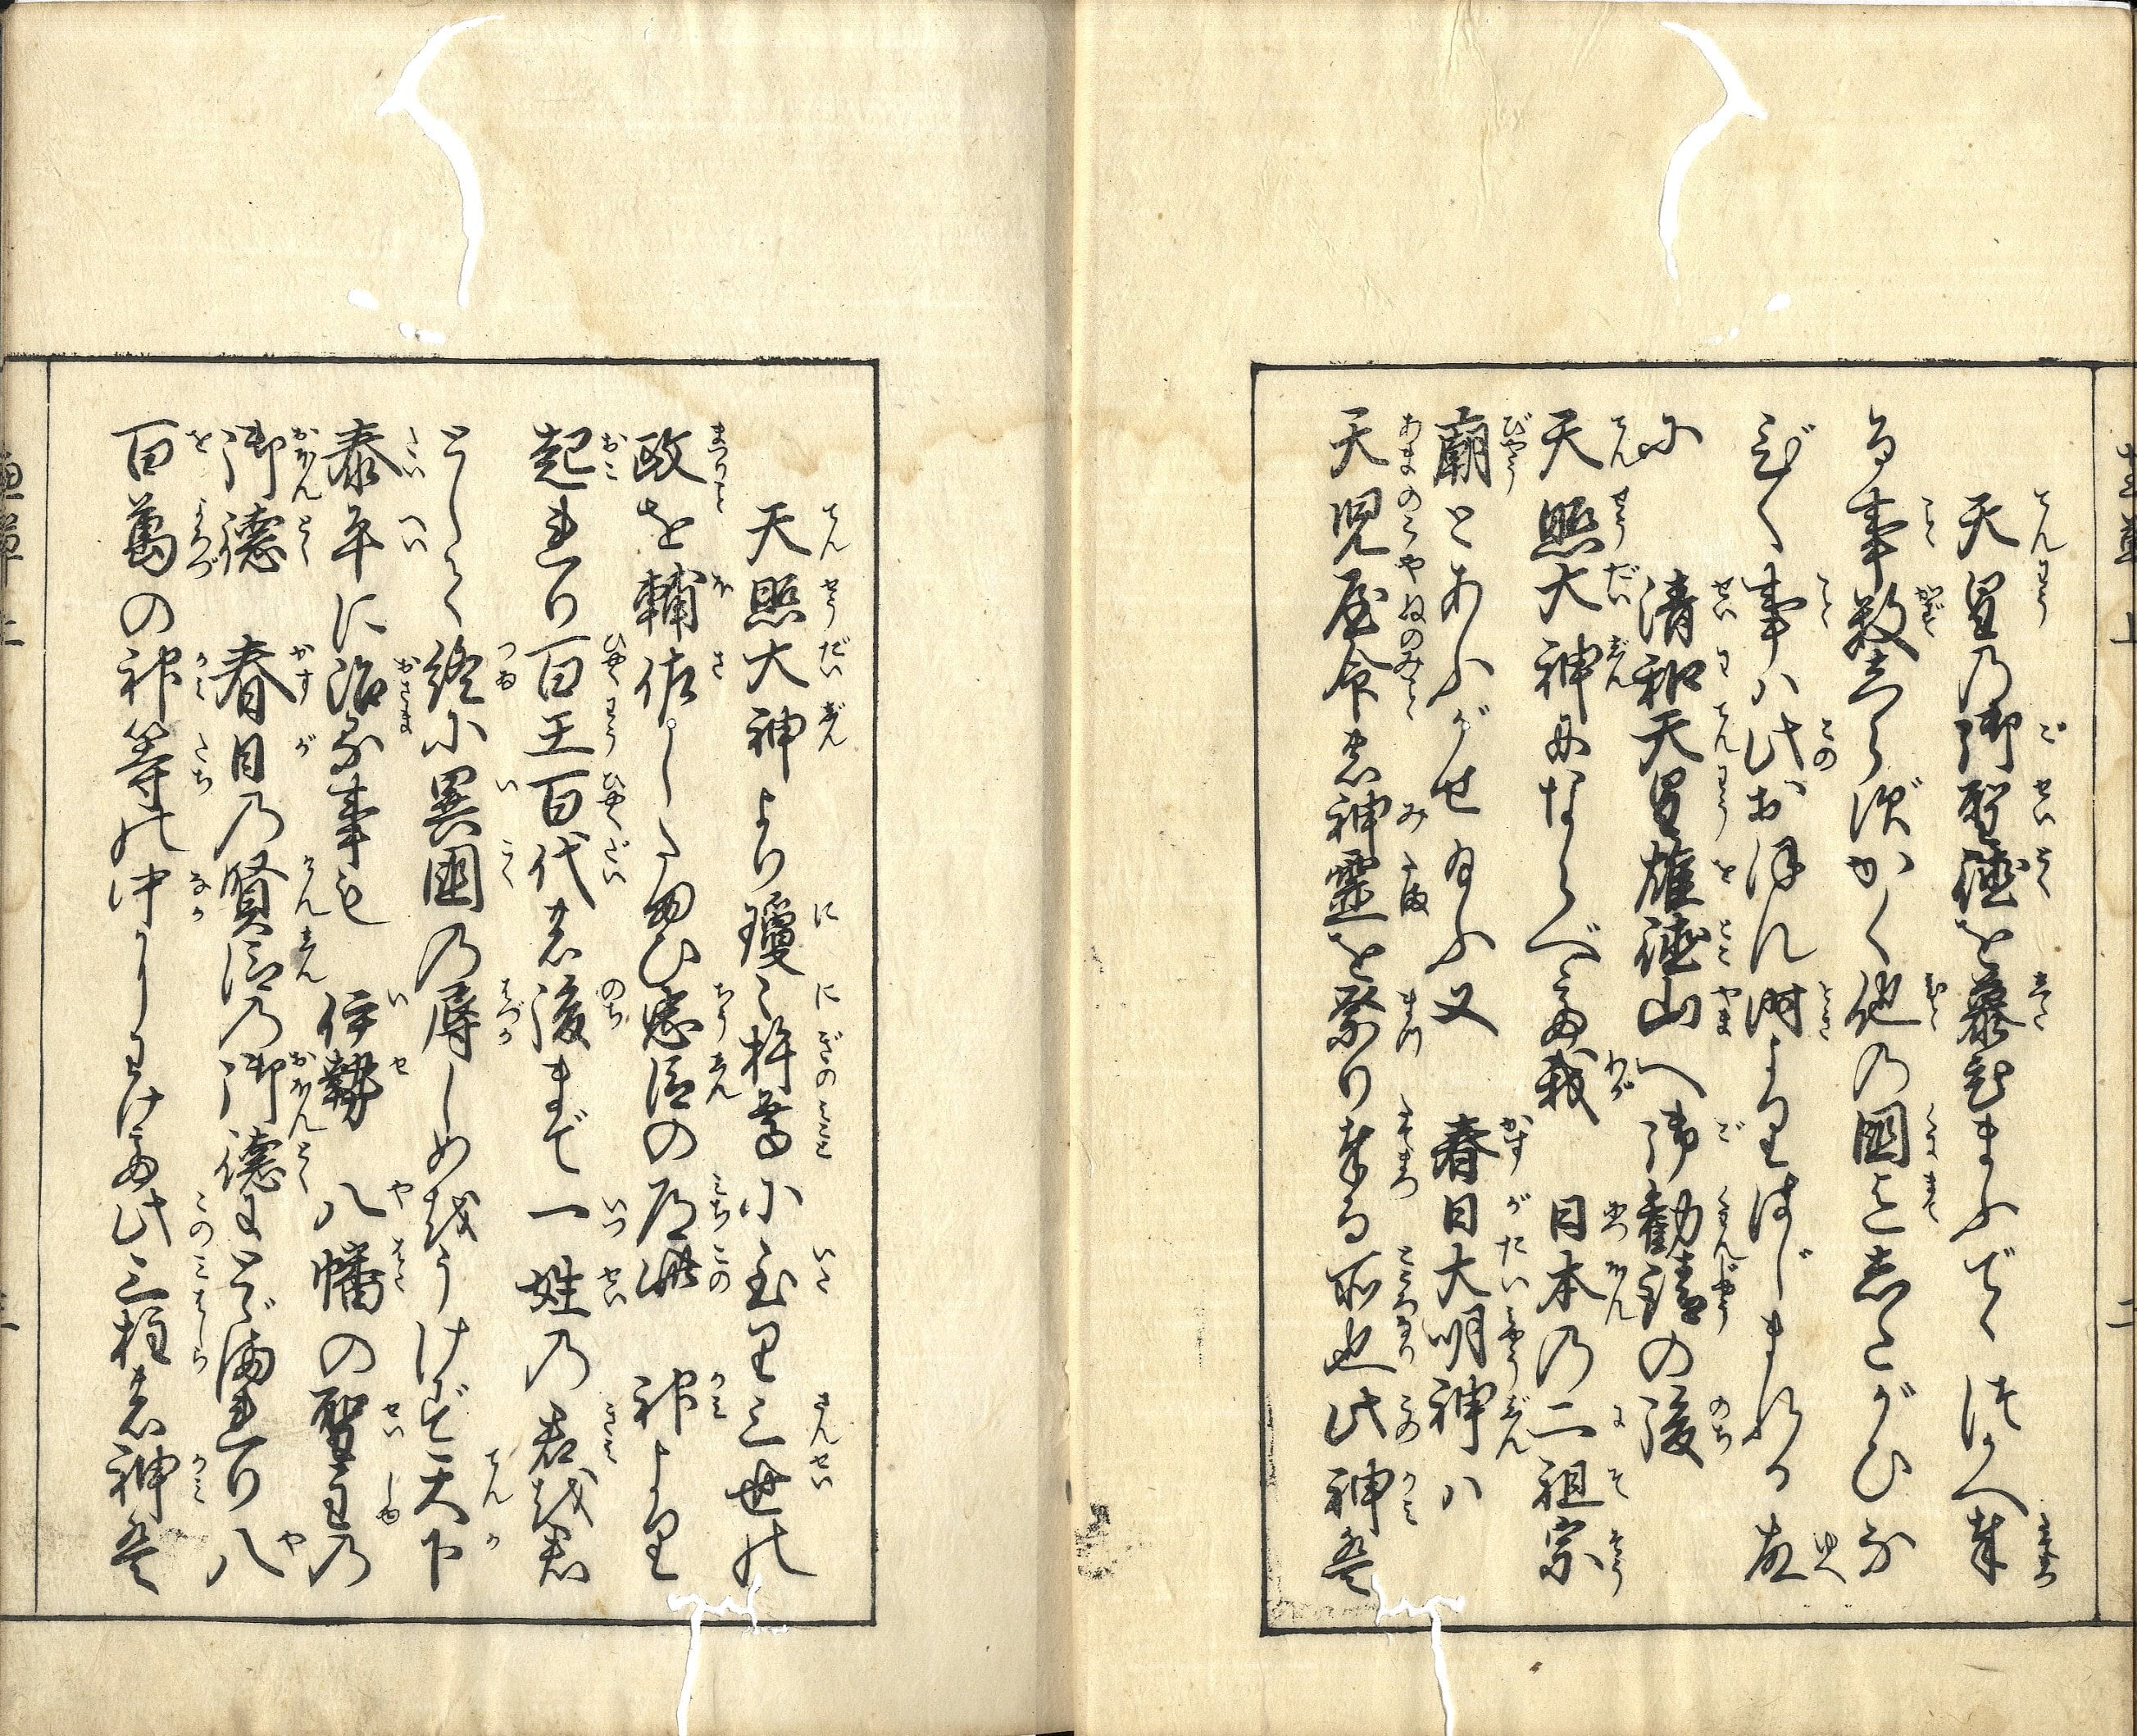 天皇乃御聖徳を慕ひたまふてつかへ奉
る事数しらずかく他の国ましたがひな
びく事ハ此おほん時よりはじまれる故
に　清和天皇雄徳山へ御勧請の後
天照大神にならべて我　日本の二祖宗
廟とあふがせ給ふ又　春日大明神ハ
天児屋命の神霊を祭り奉る所也此神は
天照大神より瓊々杵尊に至り三世の
政を輔佐したまひ忠臣の道此　神より
起れり百王百代の後まで一姓の君を君
として終に異国の辱しめをうけず天下
泰平に治る事も　伊勢　八幡の聖主の
御徳　春日の賢臣の御徳にとゞまれり八
百萬の神等の中にわけて此三柱の神は